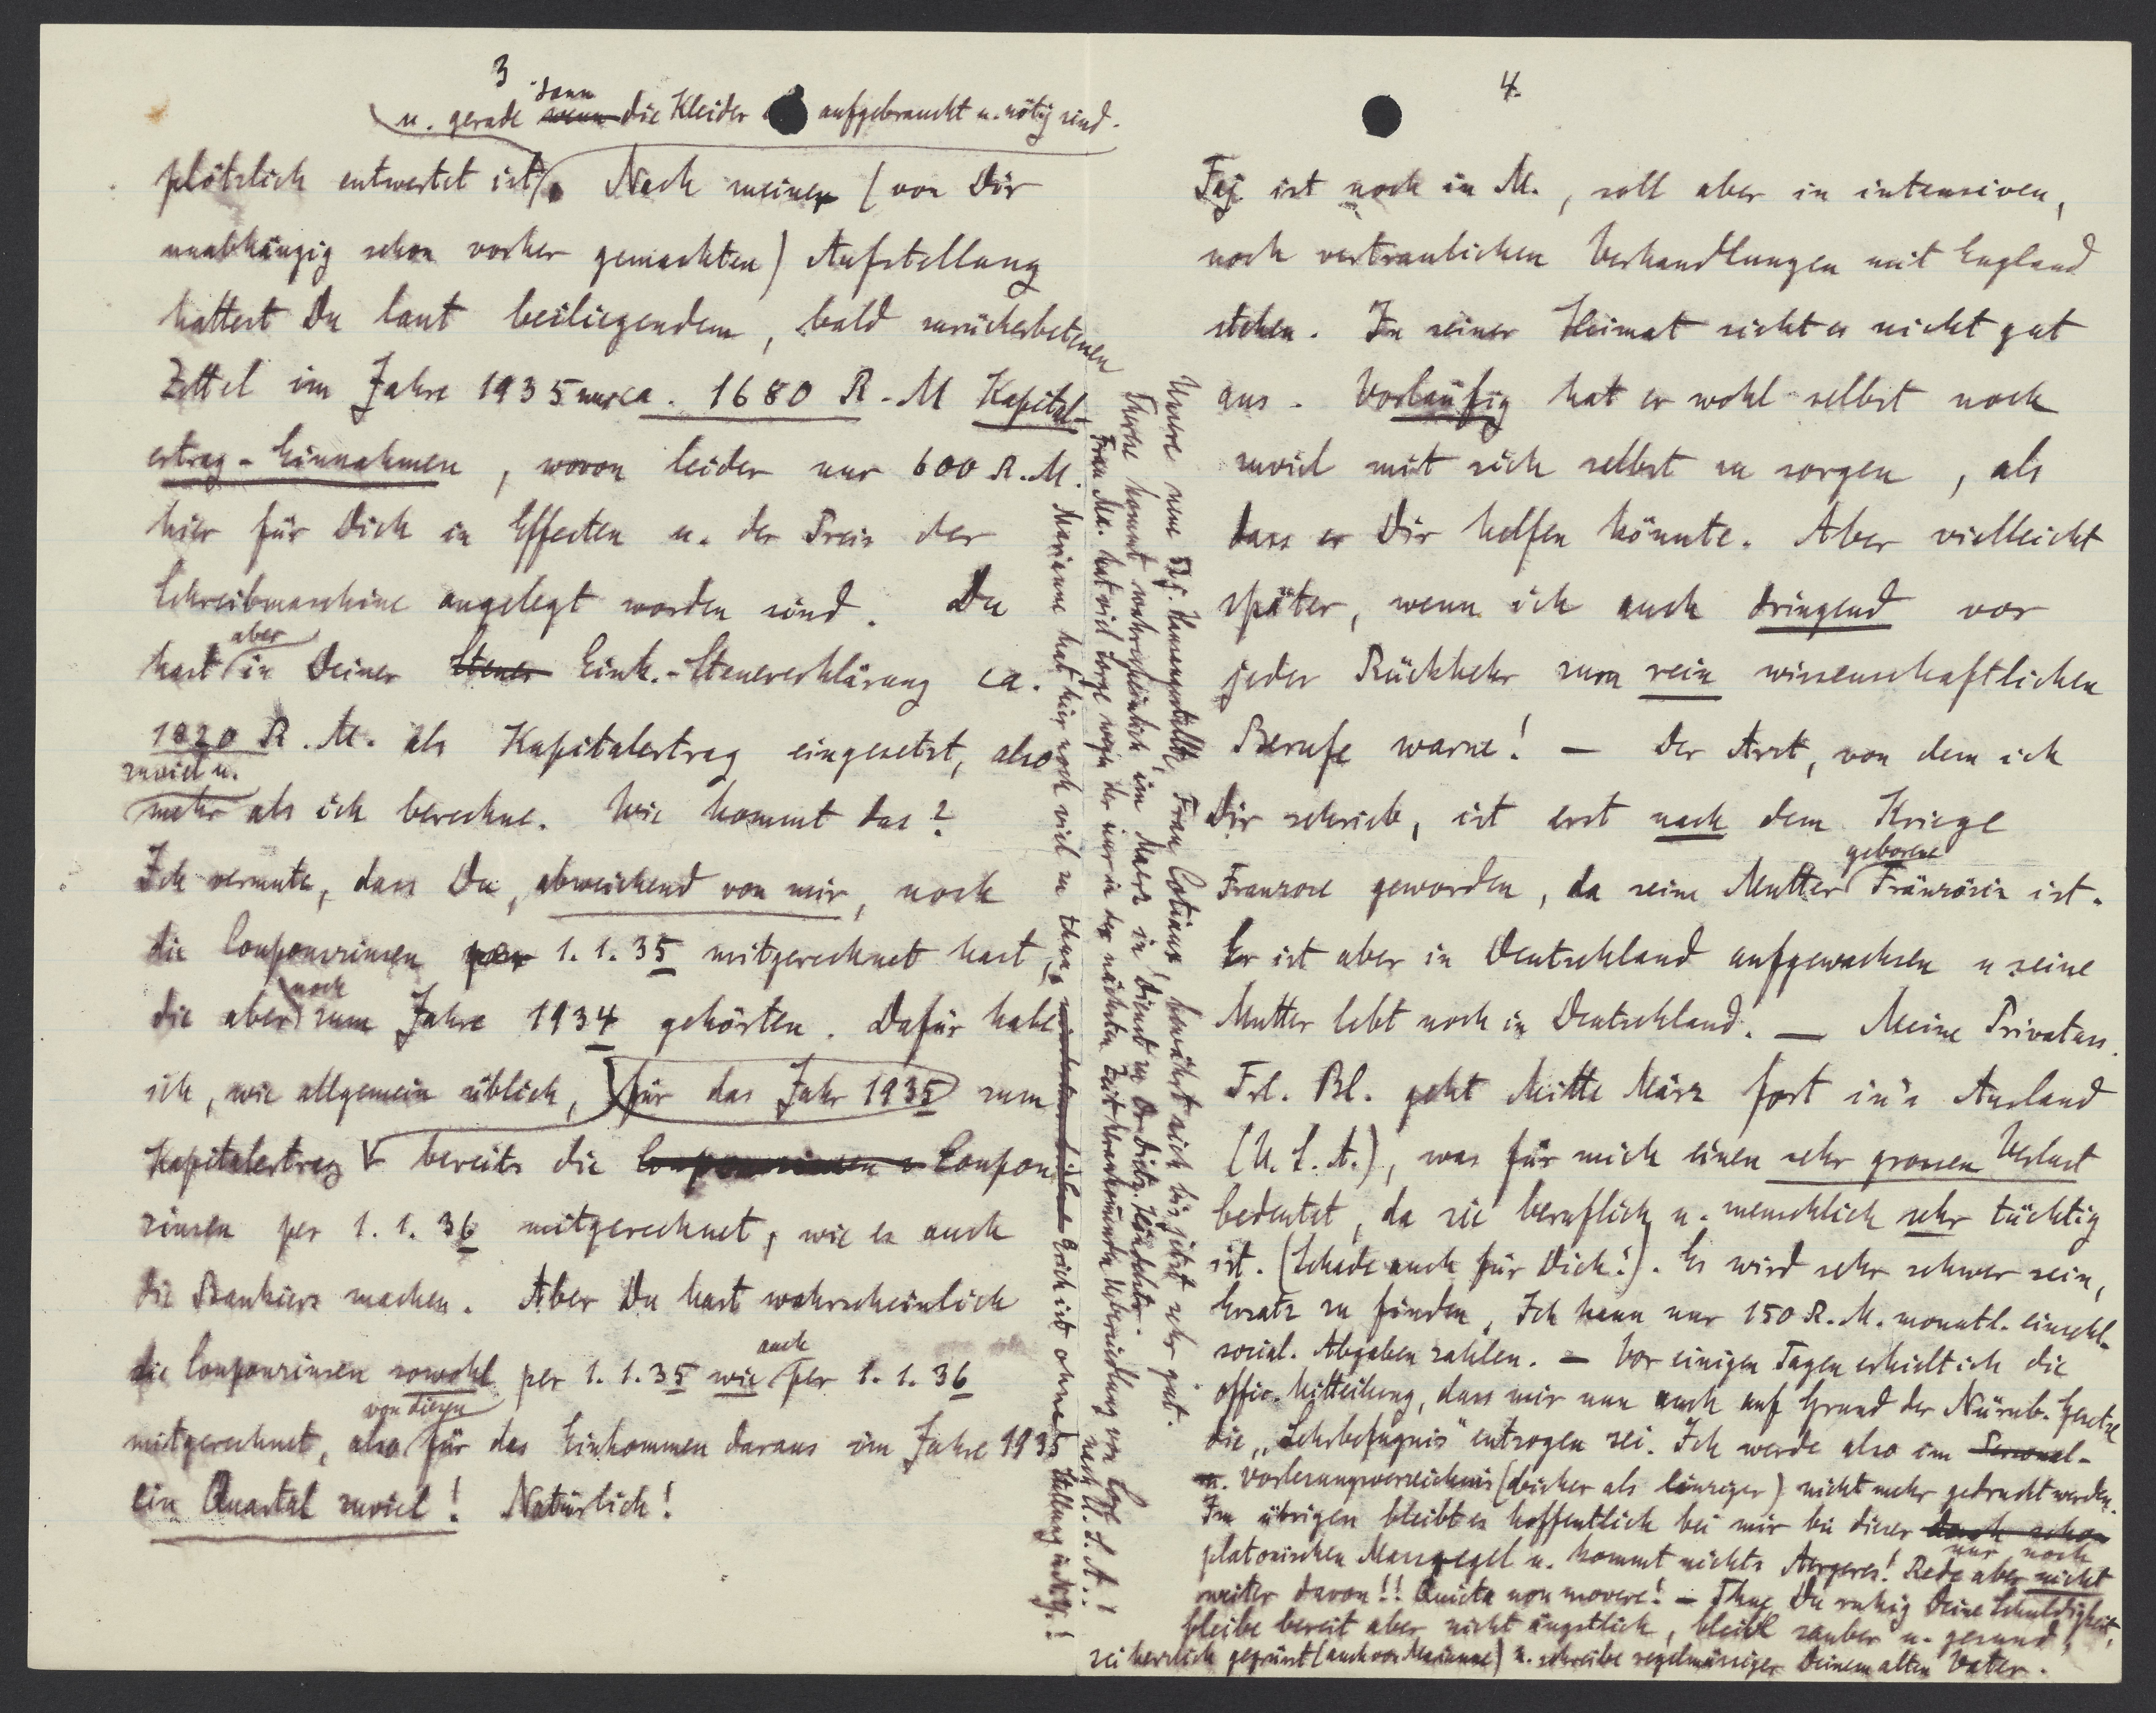 3
dann
u. gerade wenn die Kleider aufgebraucht u. nötig sind.
plötzlich entwertet ist). Nach meiner (von Dir
unabhängig schon vorher gemachten) Aufstellung
hattest Du laut beiliegendem, bald zurückerbetenen
Zettel im Jahre 1935 nur ca. 1680 R.-M Kapital-
ertrag-Einnahmen, wovon leider nur 600 R.M.
hier für Dich in Effecten u. der Preis der
Schreibmaschine angelegt worden sind. Du
aber
hast in Deiner Steuer Eink.-Steuererklärung ca.
1820 R.M. als Kapitalertrag eingesetzt, also
zuviel u.
mehr als ich berechne. Wie kommt das?
Ich vermute, dass Du, abweichend von mir, noch
die Couponzinsen per 1.1.35 mitgerechnet hast,
noch
die aber zum Jahre 1934 gehörten. Dafür habe
ich, wie allgemein üblich, für das Jahr 1935 zum
Kapitalertrag bereits die Couponzinsen Coupon
zinsen per 1.1.36 mitgerechnet, wie es auch
die Bankiers machen. Aber Du hast wahrscheinlich
auch
die Couponzinsen sowohl per 1.1.35 wie per 1.1.36
von diesen
mitgerechnet, also für das Einkommen daraus im Jahre 1935
ein Quartal zuviel! Natürlich!
Unsere neue 52j. Hausangestellte, Frau bewährt sich bis jetzt sehr gut.
Therese kommt wahrscheinlich im Maerz in Dienst zu Dr.
Frau Ma. hat viel Sorge wegen der nur in der nächsten Zeit Uebersiedlung von nach U.S.A.!
Marianne hat hier noch viel zu thun, Erich ist ohne Stellung in
4.
ist noch in M., soll aber in intensiven,
noch vertraulichen Verhandlungen mit England
stehen. In seiner Heimat sieht es nicht gut
aus. Vorläufig hat er wohl selbst noch
zuviel mit sich selbst zu sorgen, als
dass er Dir helfen könnte. Aber vielleicht
später, wenn ich auch dringend vor
jeder Rückkehr zum rein wissenschaftlichen
Berufe warne! — Der Arzt, von dem ich
Dir schrieb, ist erst nach dem Kriege
geborene
Franzose geworden, da seine Mutter Französin ist.
Er ist aber in Deutschland aufgewachsen u seine
Mutter lebt noch in Deutschland. — Meine Privatass.
Frl. Bl. geht Mitte März fort in's Ausland
(U.S.A.), was für mich einen sehr grossen Verlust
bedeutet, da sie beruflich u. menschlich sehr tüchtig
ist. (Schade auch für Dich!). Es wird sehr schwer sein,
Ersatz zu finden, Ich kann nur 150 R.M. monatl. einschl.
social. Abgaben zahlen. — Vor einigen Tagen erhielt ich die
offic. Mitteilung, dass mir nun auch auf Grund der Nürnb. Gesetze
die „Lehrbefugnis" entzogen sei. Ich werde also im Personal-
u. Vorlesungsverzeichnis (bisher als einziger) nicht mehr gedruckt werden.
Im übrigen bleibt es hoffentlich bei mir bei dieser doch schon
nur noch
platonischen Massregel u. kommt nichts Aergeres! Rede aber nicht
weiter davon!! Quieta non movere! — Thue Du ruhig Deine Schuldigkeit,
bleibe bereit aber nicht ängstlich, bleibe sauber u. gesund,
sei herzlich gegrüsst (auch von Marianne) u. schreibe regelmässiger Deinem alten Vater.